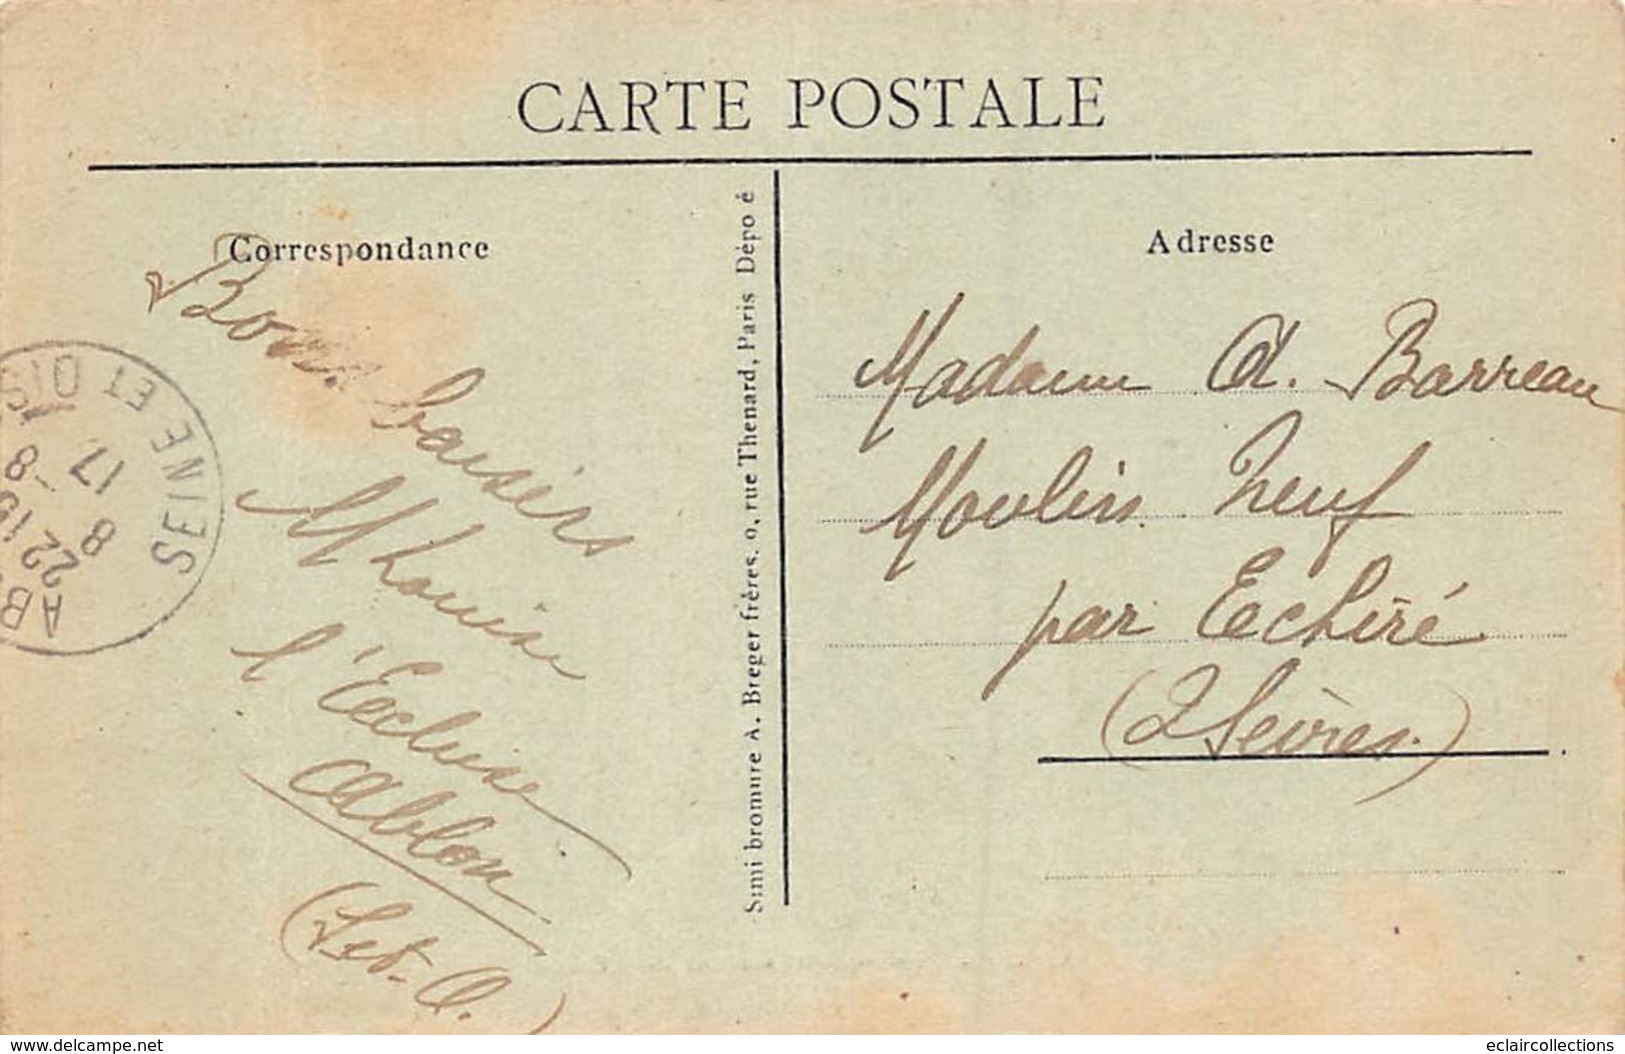 CARTE POSTALE
Correspondance
Adresse
Bons baisers
M Louise
l'Ecluse
Ablon
(S et-O.)
Madame A. Barreau
Moulin Neuf
par Echiré
(2 Sèvres.)
Simi bromure A. Breger frères, 9, rue Thenard, Paris Dépo é
SEINE ET OIS
AB
22 19
8 -8
17
www.delcampe.net
eclaircollections